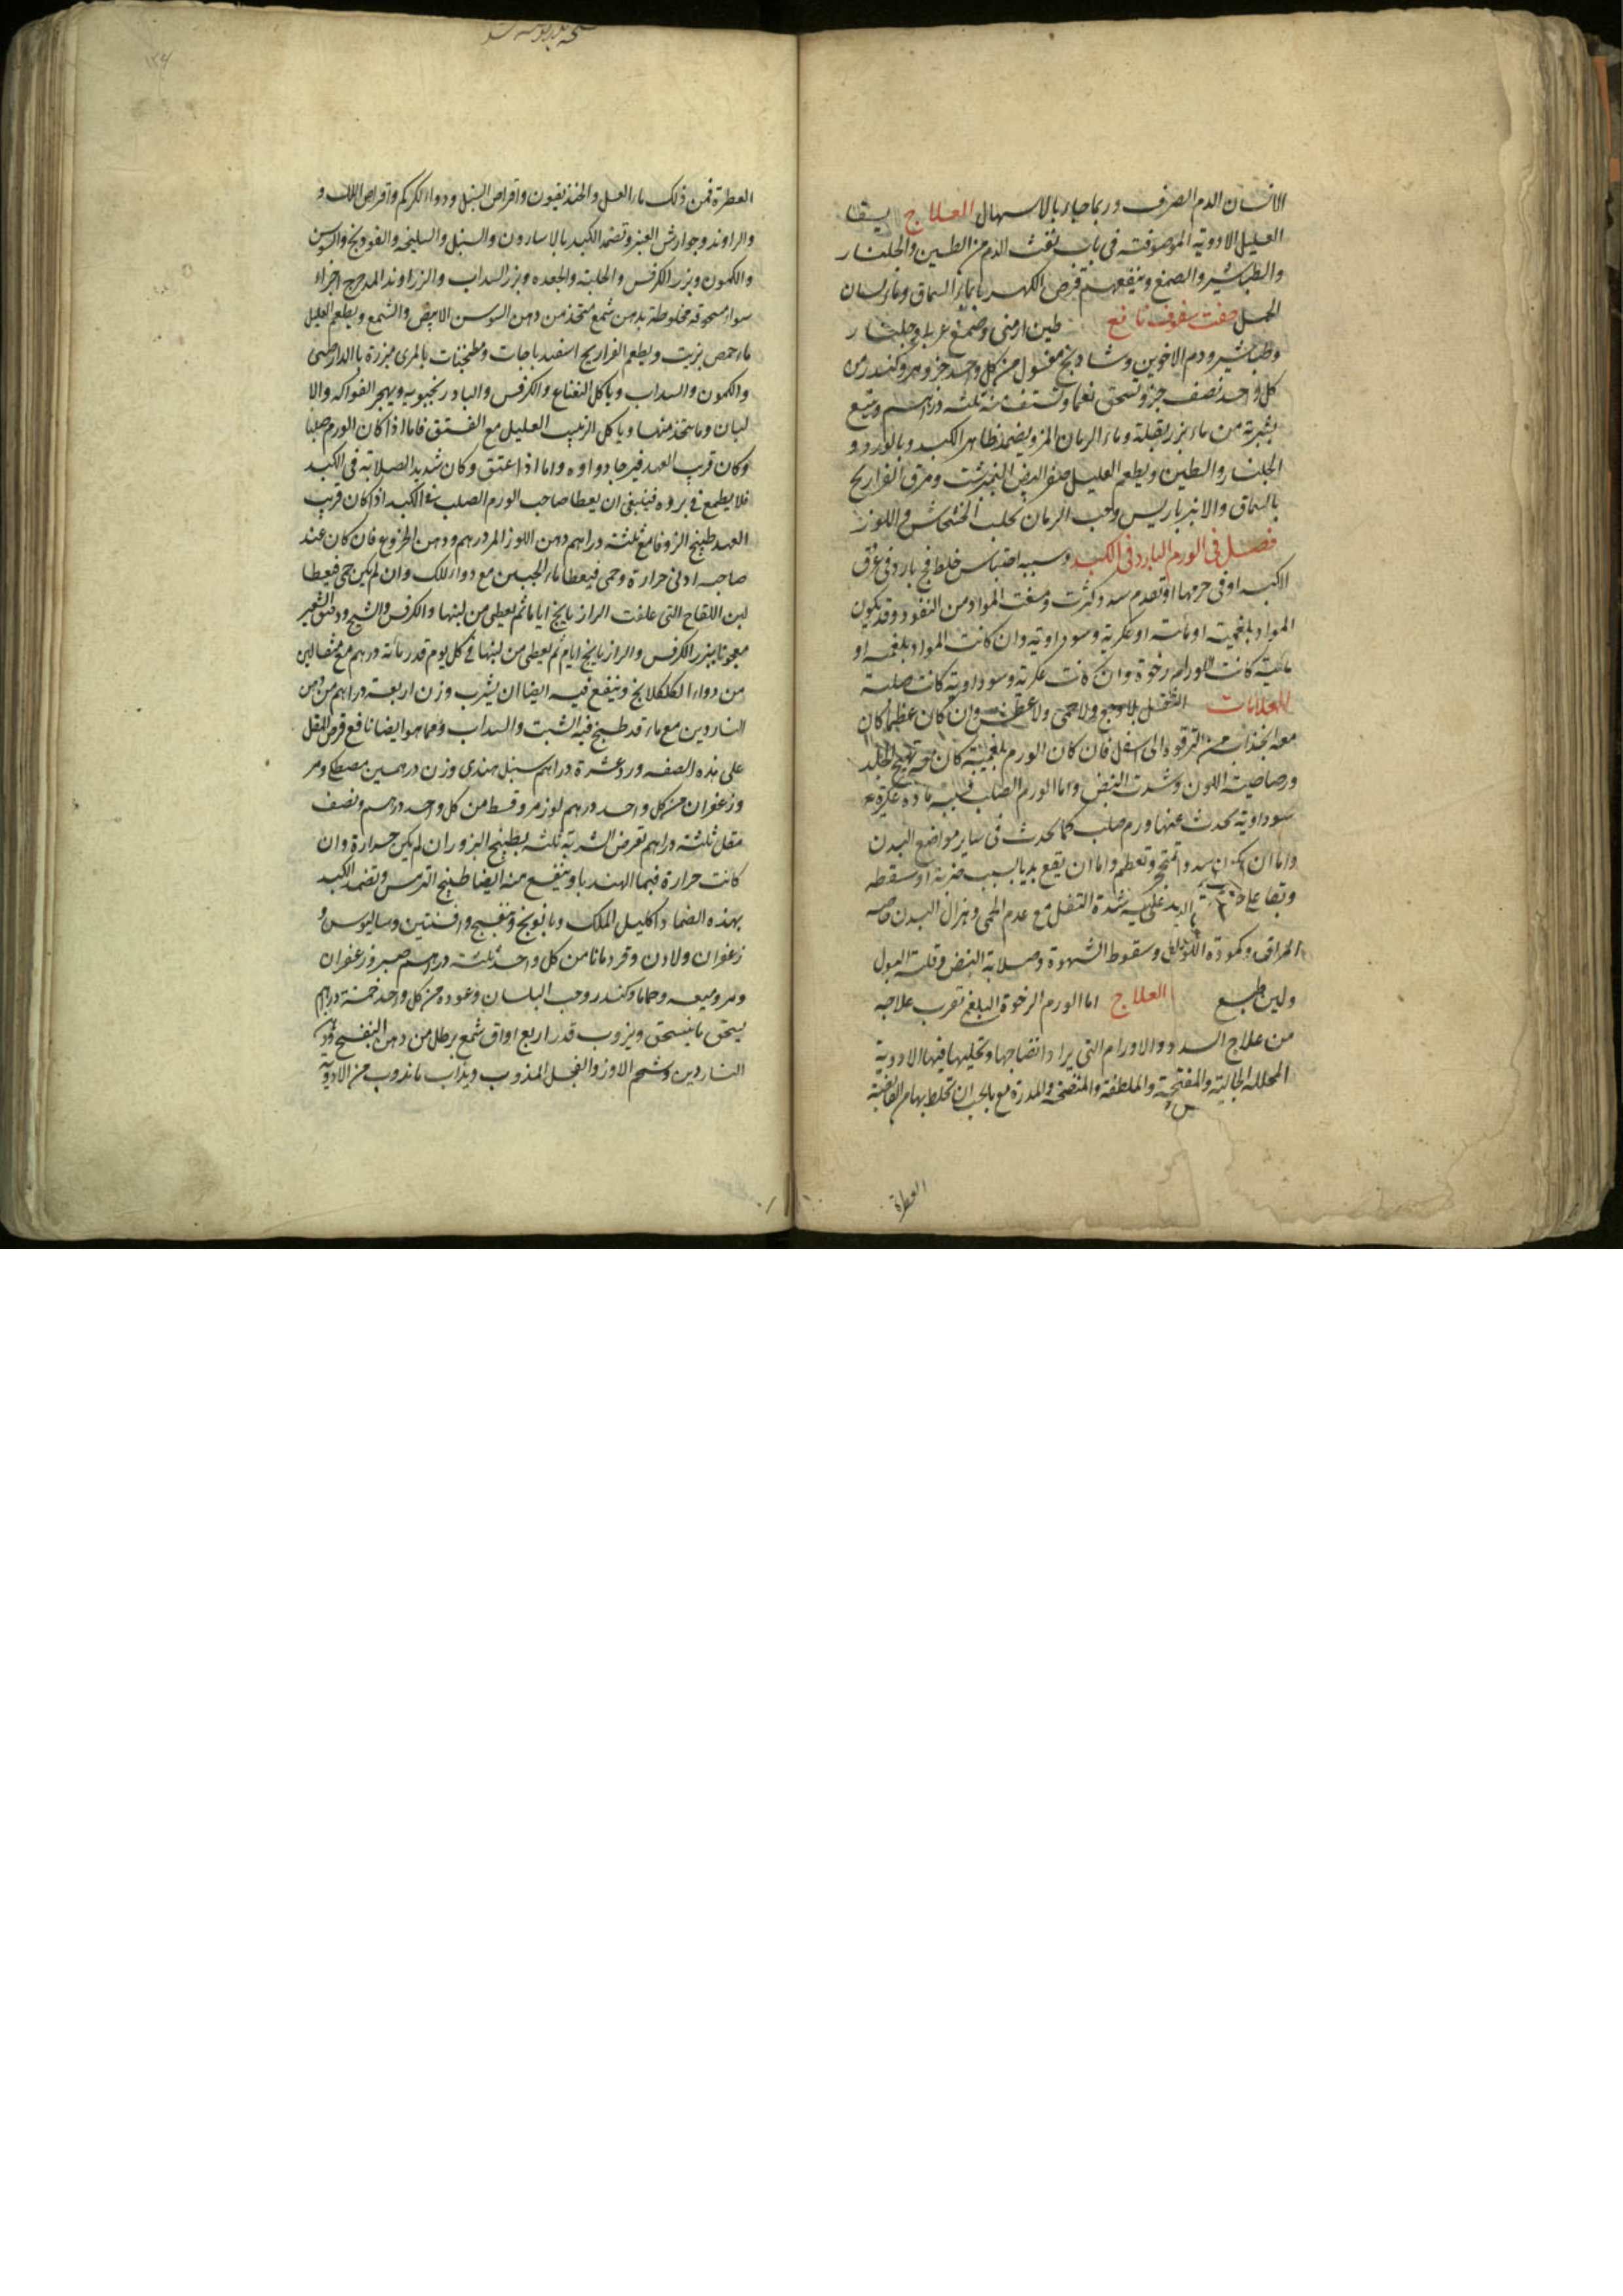 الانسان الدم الصرف وربما جاء بالاسهال العلاج يسقا
العليل الادوية الموصوفة في باب نفث الدم من الطين والجلنار
والطباشير والصمغ وينفعهم قرص الكهربا بماء السماق وماء لسان
الحمل صفت سفوف نافع طين ارمنى وصمغ عربى وجلنار
وطباشير ودم الاخوين وشادنج مغسول من كل واحد جزو مر وكندر من
كل واحد نصف جزو تسحق نعما وتستف منه ثلثه دراهم ويتبع
بشربة من ماء بزر بقلة وماء الرمان المز ويضمد ظاهر الكبد بالورد و
الجلنار والطين ويطعم العليل صفر البيض النيمبرشت ومرق الفراريج
بالسماق والانبرباريس وحب الرمان بحلب الخشخاش واللوز
فصل في الورم البارد في الكبد وسببه احتباس خلط فج بارد في عرق
الكبد او في جرمها او تقدم سدد كثرت ومنعت المواد من النفود وقد يكون
المواد بلغمية او مائية او عكرية وسوداوية وان كانت المواد بلغميه او
مائية كانت الاورام رخوة وان كانت عكرية وسوداوية كانت صلبة
العلامات الثقل بلا وجع ولا حمى ولا عطش وان كان عظيما كان
معه انجذاب من الترقوة الى اسفل فان كان الورم بلغمية كان معه تهيج الجلد
ورصاصية اللون وشدت النبض واما الورم الصلب فسببه مادة عكرة
سوداوية يحدث عنها ورم صلب كما يحدث في ساير مواضع البدن
واما ان يكون سدد وتعظم واما ان يقع بديا بسبب ضربة او سقطه
شدة الثقل مع عدم الحمى وهزال البدن
المراق وكمودة اللون وسقوط الشهوة وصلابة النبض وقلت البول
ولين طبع العلاج اما الورم الرخوة البلغمى تقرب علاجه
من علاج السدد والاورام التي يراد انضاجها وتحليلها فيها الادوية
المحللة الجالية والمفتحة والملطفة والمنضجة والمدرة مع ما يجب ان تخلط بها من القابضة
العطرة
العطرة فمن ذلك ماء العسل والخنديقون واقراص السنبل ودواء الكركم واقراص اللك و
والراوند وجوارش العنبر وتضمد الكبد بالاسارون والسنبل والسليخه والفودنج والسوسن
والكمون وبزر الكرفس والحلبة والجعده وبزر السداب والزراوند المدحرج اجزاء
سواء مسحوقه مخلوطة بدهن شمع متخذ من دهن السوسن الابيض والشمع ويطعم العليل
ماء حمص بزيت ويطعم الفراريج اسفيدباجات ومطجنات بالمرى مبزرة بالدارصينى
والكمون والسداب وياكل النعناع والكرفس والبادرنجبويه ويهجر الفواكه والا
لبان وما يتخذ منها وياكل الزبيب العليل مع الفستق فاما اذا كان الورم صلبا
وكان قريب العهد فيرجا دواوه واما اذا عتق وكان شديد الصلابة في الكبد
فلا يطمع في بروه فينبغى ان يعطا صاحب الورم الصلب في الكبد اذا كان قريب
العهد طبيخ الزوفا مع ثلثة دراهم دهن اللوز المر درهم ودهن الخروع فان كان عند
صاحبه ادنى حرارة وحمى فيعطا ماء الجبن مع دواء اللك وان لم يكن حمى فيعطا
لبن اللقاح التى علفت الرازيانج اياما ثم يعطى من لبنها والكرفس والشيح ودقيق الشعير
معجونا ببزر الكرفس والرازيانج ايام ثم يعطى من لبنها في كل يوم قدر مائة درهم مع مثقالين
من دواء الكلكلانج وينفع فيه ايضا ان يشرب وزن اربعة دراهم من دهن
الناردين مع ماء قد طبخ فيه الشبت والسداب ومما هو ايضا نافع قرص المقل
على هذه الصفه ورد عشرة دراهم سنبل هندى وزن درهمين مصطكى ومر
وزعفران من كل واحد درهم لوز مر وقسط من كل واحد درهم ونصف
مقل ثلثة دراهم تقرض الشربة ثلثه بطبيخ البزور ان لم يكن حرارة وان
كانت حرارة فبماء الهندبا وينفع منه ايضا طبيخ الترمس وتضمد الكبد
بهذه الضماد اكليل الملك وبابونج وبنفسج وافسنتين وساليوس و
زعفران ولادن وقردمانا من كل واحد ثلثة دراهم صبر وزعفران
ومر وميعه وحماما وكندر وحب البلسان وعوده من كل واحد خمسة دراهم
يسحق ما ينسحق ويذوب قدر اربع اواق شمع برطل من دهن البنفسج ودهن
الناردين وشحم الاوز والفجل المذوب ويذاب ما يذوب من الادوية